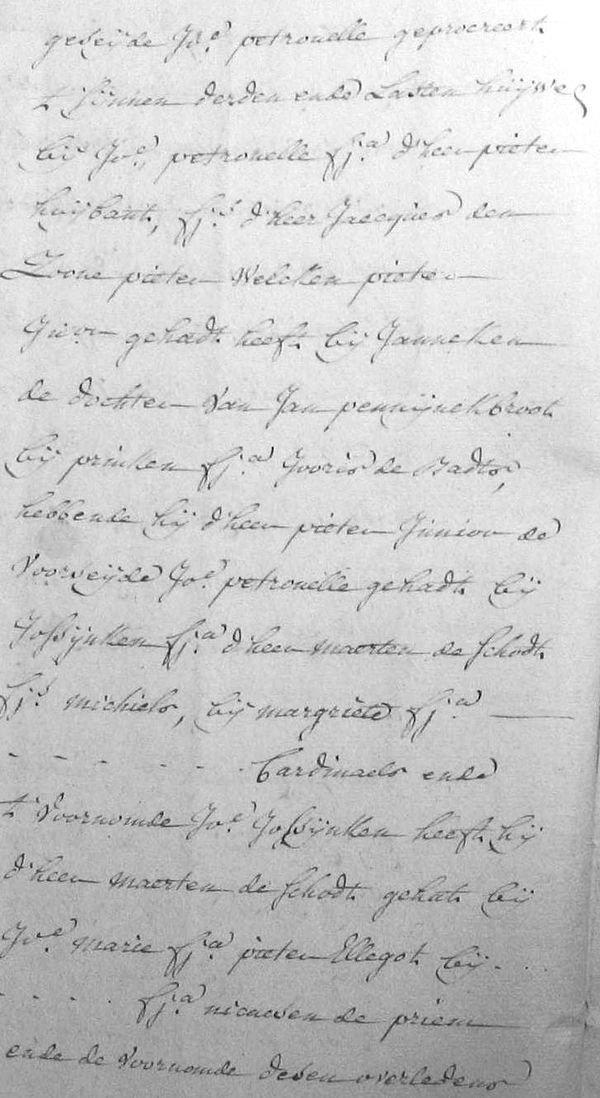 geseijde Joe petronelle geprocreert
t' sijnnen derden ende Lasten huijwe
bij Joe, petronelle fja d'heer pieter
huijbant, fjs d'heer Jacques den
Zoone pieter Welcken pieter
Junor gehadt heeft bij Janneken
de dochter van Jan pennijnckbroot
bij prinken fja Jooris de Badts,
hebbende hij d'heer pieter Junior de
Voorseijde Joe petronelle gehadt bij
Jossijnken fja d'heer maerten de Schodt
fjs michiels, bij margriete fja
- - - - - Cardinaels ende
t' Voornomde Joe Jossijnken heeft hij
d'heer maerten de Schodt gehat bij
Joe marie fja pieter Ellegot bij . . .
- - - - fja de priem
ende de Voornomde desen overledens